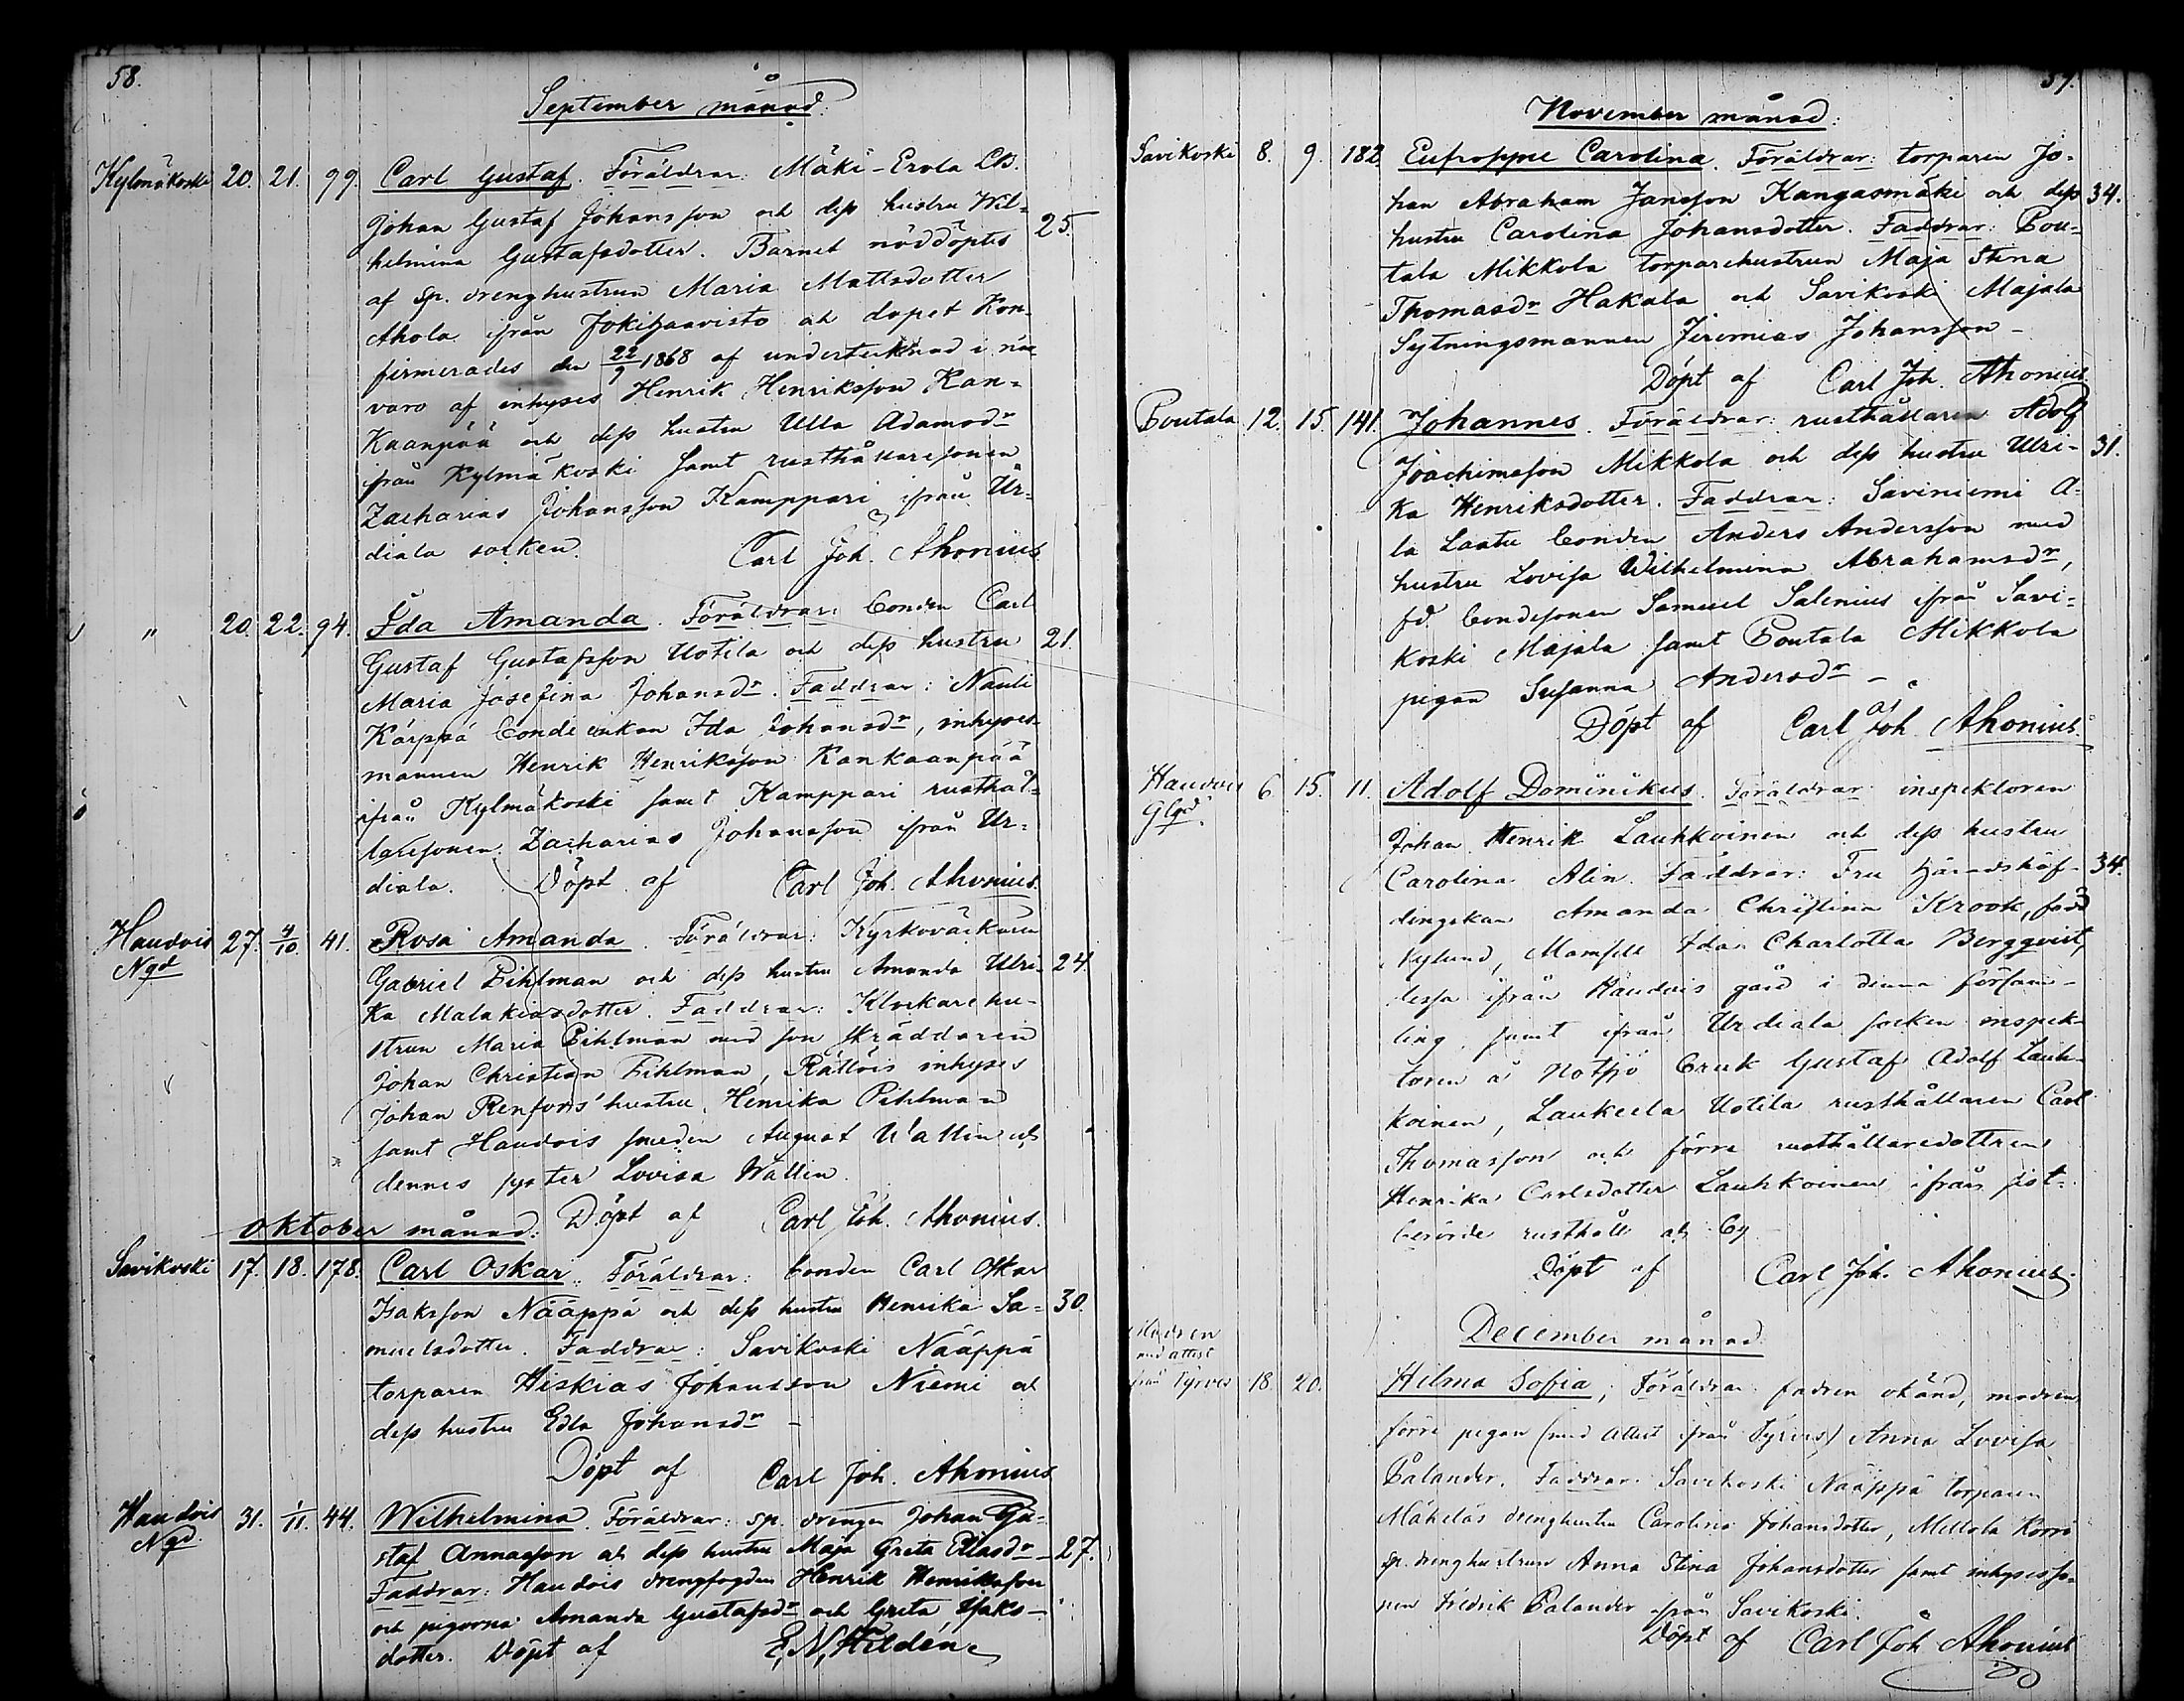 58.
September månad.
Kylmäkoski 20. 21. 99. Carl Gustaf. Föräldrar: Mäki-Erola
Johan Gustaf Johansson och dess hustru Wil-
helmina Gustafsdotter. Barnet nöddöptes 25.
af Sp. drenghustrun Maria Mattsdotter
Ahola ifrån Jokihaavisto och dopet Kon-
firmerades den 22/9 1868 af undertecknad i när-
varo af inhyses Henrik Henriksson Kan-
kaanpää och dess hustru Ulla Adamsdr
från Kylmäkoski samt rusthållaresonen
Zacharias Johansson Kamppari ifrån Ur-
diala socken. Carl Joh. Ahonius
" 20. 22. 94. Ida Amanda. Föräldrar: bonden Carl
Gustaf Gustafsson Uotila och dess hustru 21.
Maria Josefina Johansdr. Faddrar: Nauli
Kärppä bonde enkan Ida Johansdr, inhyses-
mannen Henrik Henriksson Kankaanpää
ifrån Kylmäkoski samt Kamppari rusthål-
laresonen Zacharias Johansson ifrån Ur-
diala. Döpt af Carl Joh. Ahonius.
Haudois Ngd 27. 4/10. 41. Rosa Amanda. Föräldrar: Kyrkoväktaren
Gabriel Pihlman och dess hustru Amanda Ulri- 24.
ka Malakiasdotter. Faddrar: Klockarehu-
strun Maria Pihlman med son skräddaren
Johan Christian Pihlman, Rättöis inhyses
Johan Renfors' hustru Henrika Pihlman
samt Haudois smeden August Wallin och
dennes syster Lovisa Wallin.
Döpt af Carl Joh. Ahonius.
Oktober månad:
Savikoski 17. 18. 178. Carl Oskar. Föräldrar: bonden Carl Oskar
Isaksson Nääppä och dess hustru Henrika Sa- 30.
muelsdotter. Faddrar: Savikoski Nääppä
torparen Hiskias Johansson Niemi och
dess hustru Edla Johansdr –
Döpt af Carl Joh. Ahonius
Haudois Ngd. 31. 1/11. 44. Wilhelmina. Föräldrar: sp. drengen Johan Gu-
staf Annasson och dess hustru Maja Greta Eliasdr – 27.
Faddrar: Haudois drengfogden Henrik Henriksson
och pigorna Amanda Gustafsdr och Greta Isaks-
dotter. Döpt af E. N. Hildén
November månad:
Savikoski 8. 9. 182. Eufrosyne Carolina. Föräldrar: torparen Jo-
han Abraham Jansson Kangasmäki och dess 34.
hustru Carolina Johansdotter. Faddrar: Pou-
tala Mikkola torparehustrun Maja Stina
Thomasdr Hakala och Savikoski Majala
Sytningsmannen Jeremias Johansson –
Döpt af Carl Joh. Ahonius
Poutala 12. 15. 141. Johannes. Föräldrar: rusthållaren Adolf
Joachimsson Mikkola och dess hustru Ulri- 31.
ka Henriksdotter. Faddrar: Saviniemi A-
la Laatu bonden Anders Andersson med
hustru Lovisa Wilhelmina Abrahamsdr,
fd. bondesonen Samuel Salenius ifrån Savi-
koski Majala samt Poutala Mikkola
pigan Susanna Andersdr –
Döpt af Carl Joh. Ahonius
Haudois Glgd. 6. 15. 11. Adolf Dominikus. Föräldrar: inspektoren
Johan Henrik Lauhkoinen och dess hustru
Carolina Alin. Faddrar: Fru Häradshöf- 34.
dingskan Amanda Christina Krook, född
Nylund, Mamsell Ida Charlotta Berggvist,
dessa ifrån Haudois gård i denna försam-
ling samt ifrån Urdiala socken inspek-
toren å Notsjö bruk Gustaf Adolf Lauh-
koinen, Laukeela Uotila rusthållaren Carl
Thomasson och förra rusthållaredottren
Henrika Carlsdotter Lauhkoinen ifrån sist-
berörde rusthåll och by
Döpt af Carl Joh. Ahonius.
December månad
Modren med attest från Tyrvis 18. 20. Hilma Sofia; Föräldrar: fadren okänd, modren
förre pigan (med attest ifrån Tyrvis) Anna Lovisa
Palander. Faddrar: Savikoski Nääppä torparen
Mäkeläs drenghustru Carolina Johansdotter, Mellola Korri
sp. drenghustrun Anna Stina Johansdotter samt inhysesso-
nen Fredrik Palander från Savikoski.
Döpt af Carl Joh Ahonius